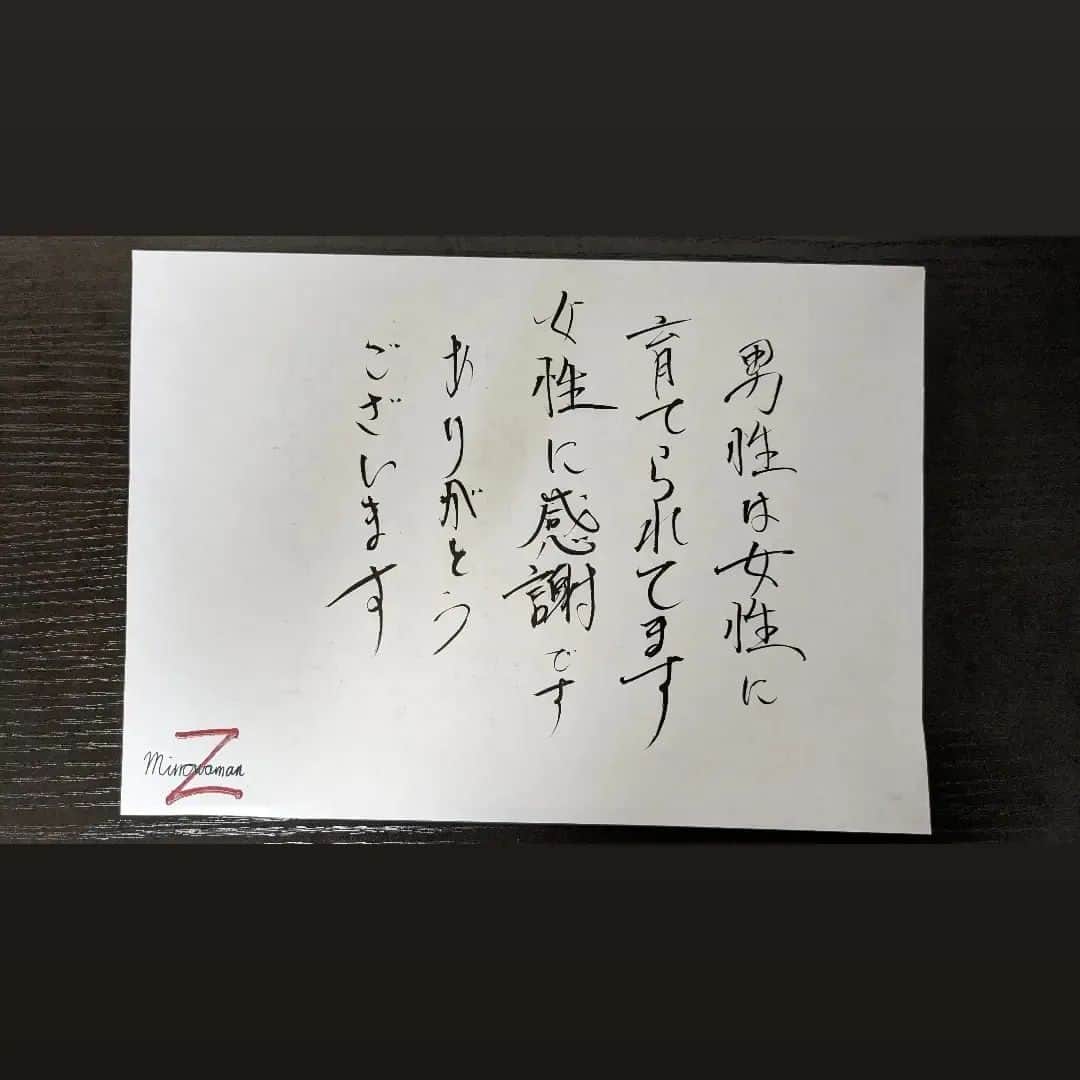 男性は女性に
育てられてます
女性に感謝です
ありがとう
ございます
Mirrowaman
Z